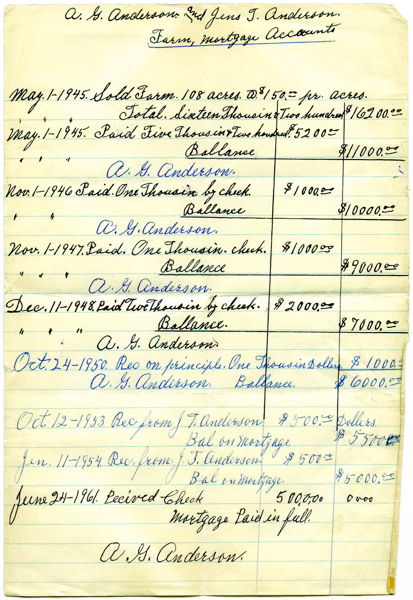 A. G. Anderson. and Jens T. Anderson.
Farm, Mortgage Accounts
May. 1-1945. Sold Farm. 108 acres. @ $150.00 pr. acres.
Total. Sixteen Thousin & Two hundred $16200.00
May. 1-1945. Paid Five Thousin & Two hundred. $5200.00
" " " Ballance $11000.00
A. G. Anderson.
Nov. 1-1946 Paid. One Thousin by check. $1000.00
" " Ballance $10000.00
A. G. Anderson.
Nov. 1-1947. Paid. One Thousin. check. $1000.00
" " " Ballance $9000.00
A. G. Anderson.
Dec. 11-1948. Paid Two Thousin by check. $2000.00
" " " Ballance. $7000.00
A. G. Anderson
Oct. 24-1950. Rec on principle. One Thousin Dollers $1000.00
A. G. Anderson. Ballance. $6000.00
Oct 12-1953 Rec from J T. Anderson $500.00 Dollers
Bal on Mortgage. $5500.00
Jen. 11-1954 Rec. from J. T. Anderson. $500.00
Bal on Mortgage $5000.00
June 24-1961. Recived Check 500,000 0000
Mortgage Paid in full.
A. G. Anderson.